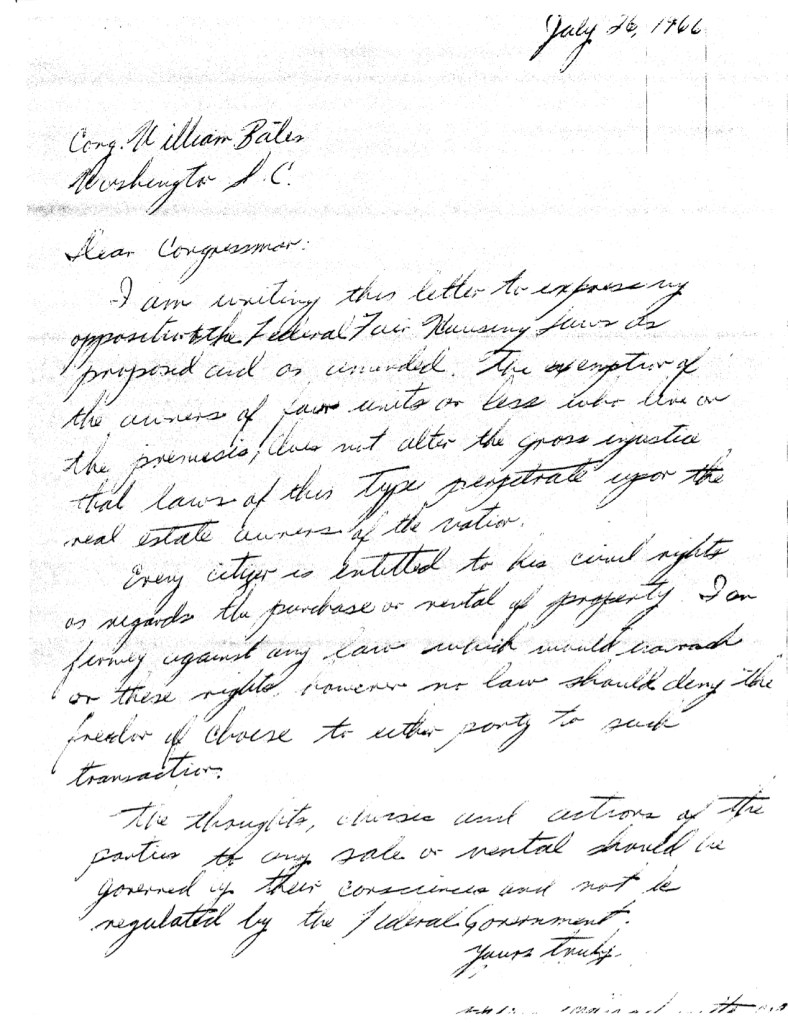 July 26, 1966
Cong. William Bates
Washington D.C.
Dear Congressman:
I am writing this letter to express my
opposition to the Federal Fair Housing laws as
proposed and as amended. The exemption of
the owners of four units or less who live on
the premesis, does not alter the gross injustice
that laws of this type perpetrate upon the
real estate owners of the nation.
Every citizen is entitled to his civil rights
as regards the purchase or rental of property. I am
firmly against any law which would
on these rights, however no law should deny the
freedom of choise to either party to such
transaction.
The thoughts, choises and actions of the
parties to any sale or rental should be
governed by their consciences and not be
regulated by the Federal Government.
Yours truly